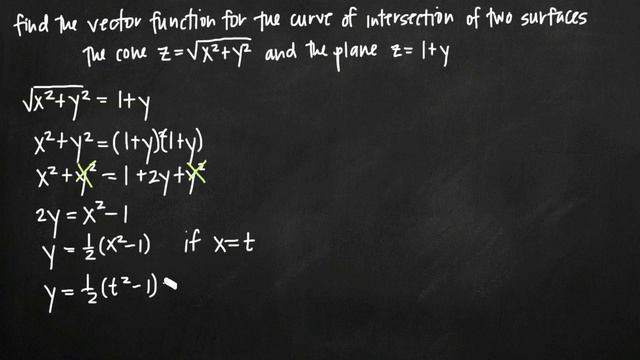 find the vector function for the curve of intersection of two surfaces
the cone z=√x²+y² and the plane z=1+y
√x²+y² = 1+y
x²+y² = (1+y)(1+y)
x²+y² = 1+2y+y²
2y = x²-1
y = 1/2(x²-1) if x=t
y = 1/2(t²-1)